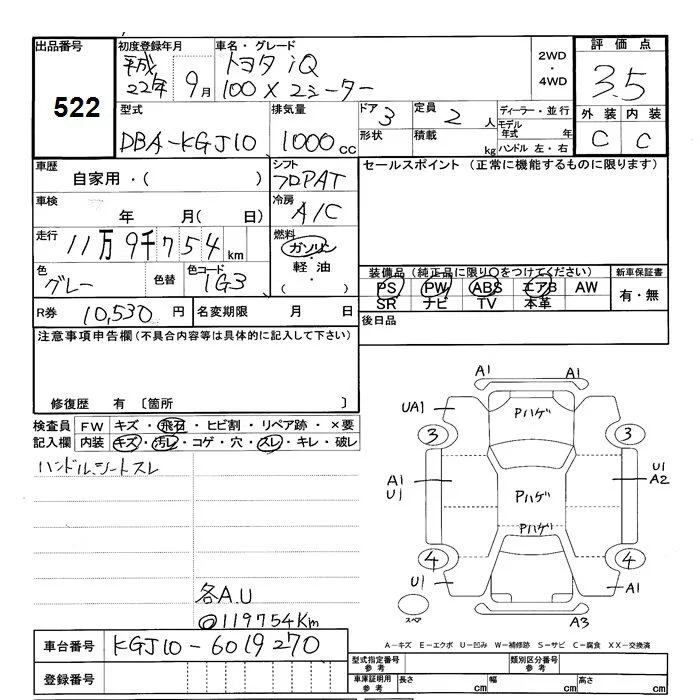 出品番号 522
初度登録年月 平成22年 9月
車名・グレード トヨタ iQ
100 X 2シーター
2WD ・ 4WD
評価点 3.5
外装 C 内装 C
型式 DBA-KGJ10
排気量 1000 cc
ドア 3 定員 2 人
形状 積載 kg
ディーラー・並行
モデル年式 年
ハンドル 左・右
車歴 自家用・( )
シフト フロアAT
セールスポイント (正常に機能するものに限ります)
車検 年 月( 日)
冷房 A/C
走行 11万9千754 km
燃料 ガソリン・軽油・( )
色 グレー 色替 色コード 1G3
装備品(純正品に限り○をつけてください) 新車保証書
PS PW ABS エアB AW 有・無
SR ナビ TV 本革
R券 10,530 円 名変期限 月 日
後日品
注意事項申告欄(不具合内容等は具体的に記入して下さい)
修復歴 有 〔箇所 〕
検査員記入欄
FW キズ・飛石・ヒビ割・リペア跡・×要
内装 キズ・汚レ・コゲ・穴・スレ・キレ・破レ
ハンドル、シートスレ
各A.U
◎119754Km
A1 A1
UA1 Pハゲ
3 3
A1 U1 Pハゲ U1 A2
Pハゲ
4 4
U1 A1
スペア A3
車台番号 KGJ10-6019270
登録番号
A-キズ E-エクボ U-凹み W-補修跡 S-サビ C-腐食 XX-交換済
型式指定番号 参考 類別区分番号 参考
車庫証明用 参考 長さ cm 幅 cm 高さ cm